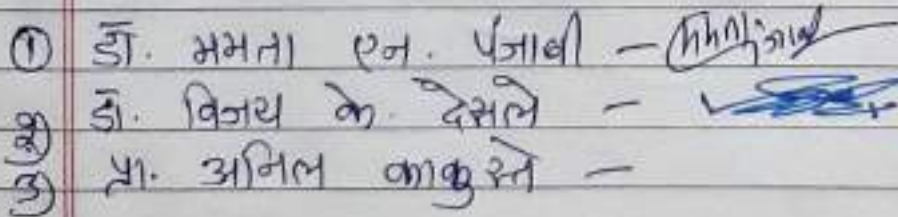 ① डॉ. ममता एन. पंजाबी -
② डॉ. विजय के. देसले -
③ प्रा. अनिल काकुस्ते -